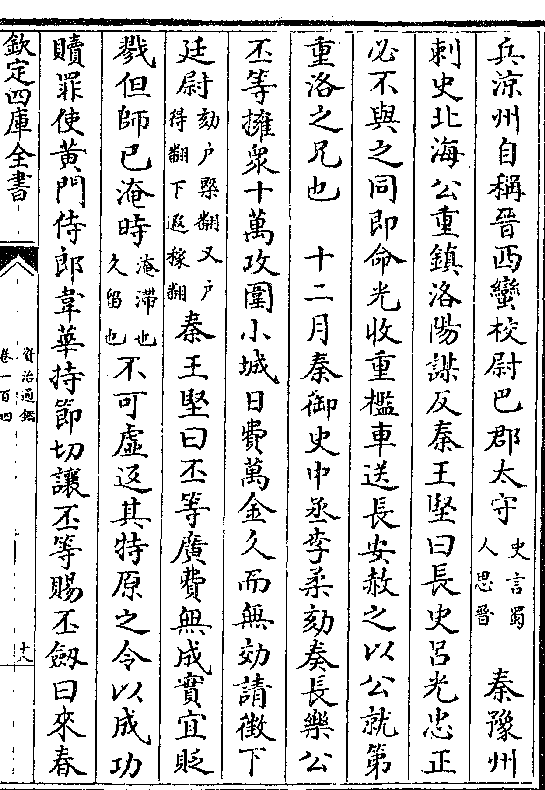 兵涼州自稱晉西蠻校尉巴郡太守史言蜀人思晉 秦豫州
刺史北海公重鎮洛陽謀反秦王堅曰長史呂光忠正
必不與之同即命光收重檻車送長安赦之以公就第
重洛之兄也 十二月秦御史中丞李柔劾奏長樂公
丕等擁衆十萬攻圍小城日費萬金久而無效請徵下
廷尉劾户槩翻又户得翻下遐稼翻秦王堅曰丕等廣費無成實宜貶
戮但師已淹時淹滯也久留也不可虛返其特原之令以成功
贖罪使黄門侍郎韋華持節切讓丕等賜丕劔曰來春
欽定四庫全書
資治通鑑
卷一百四
十八